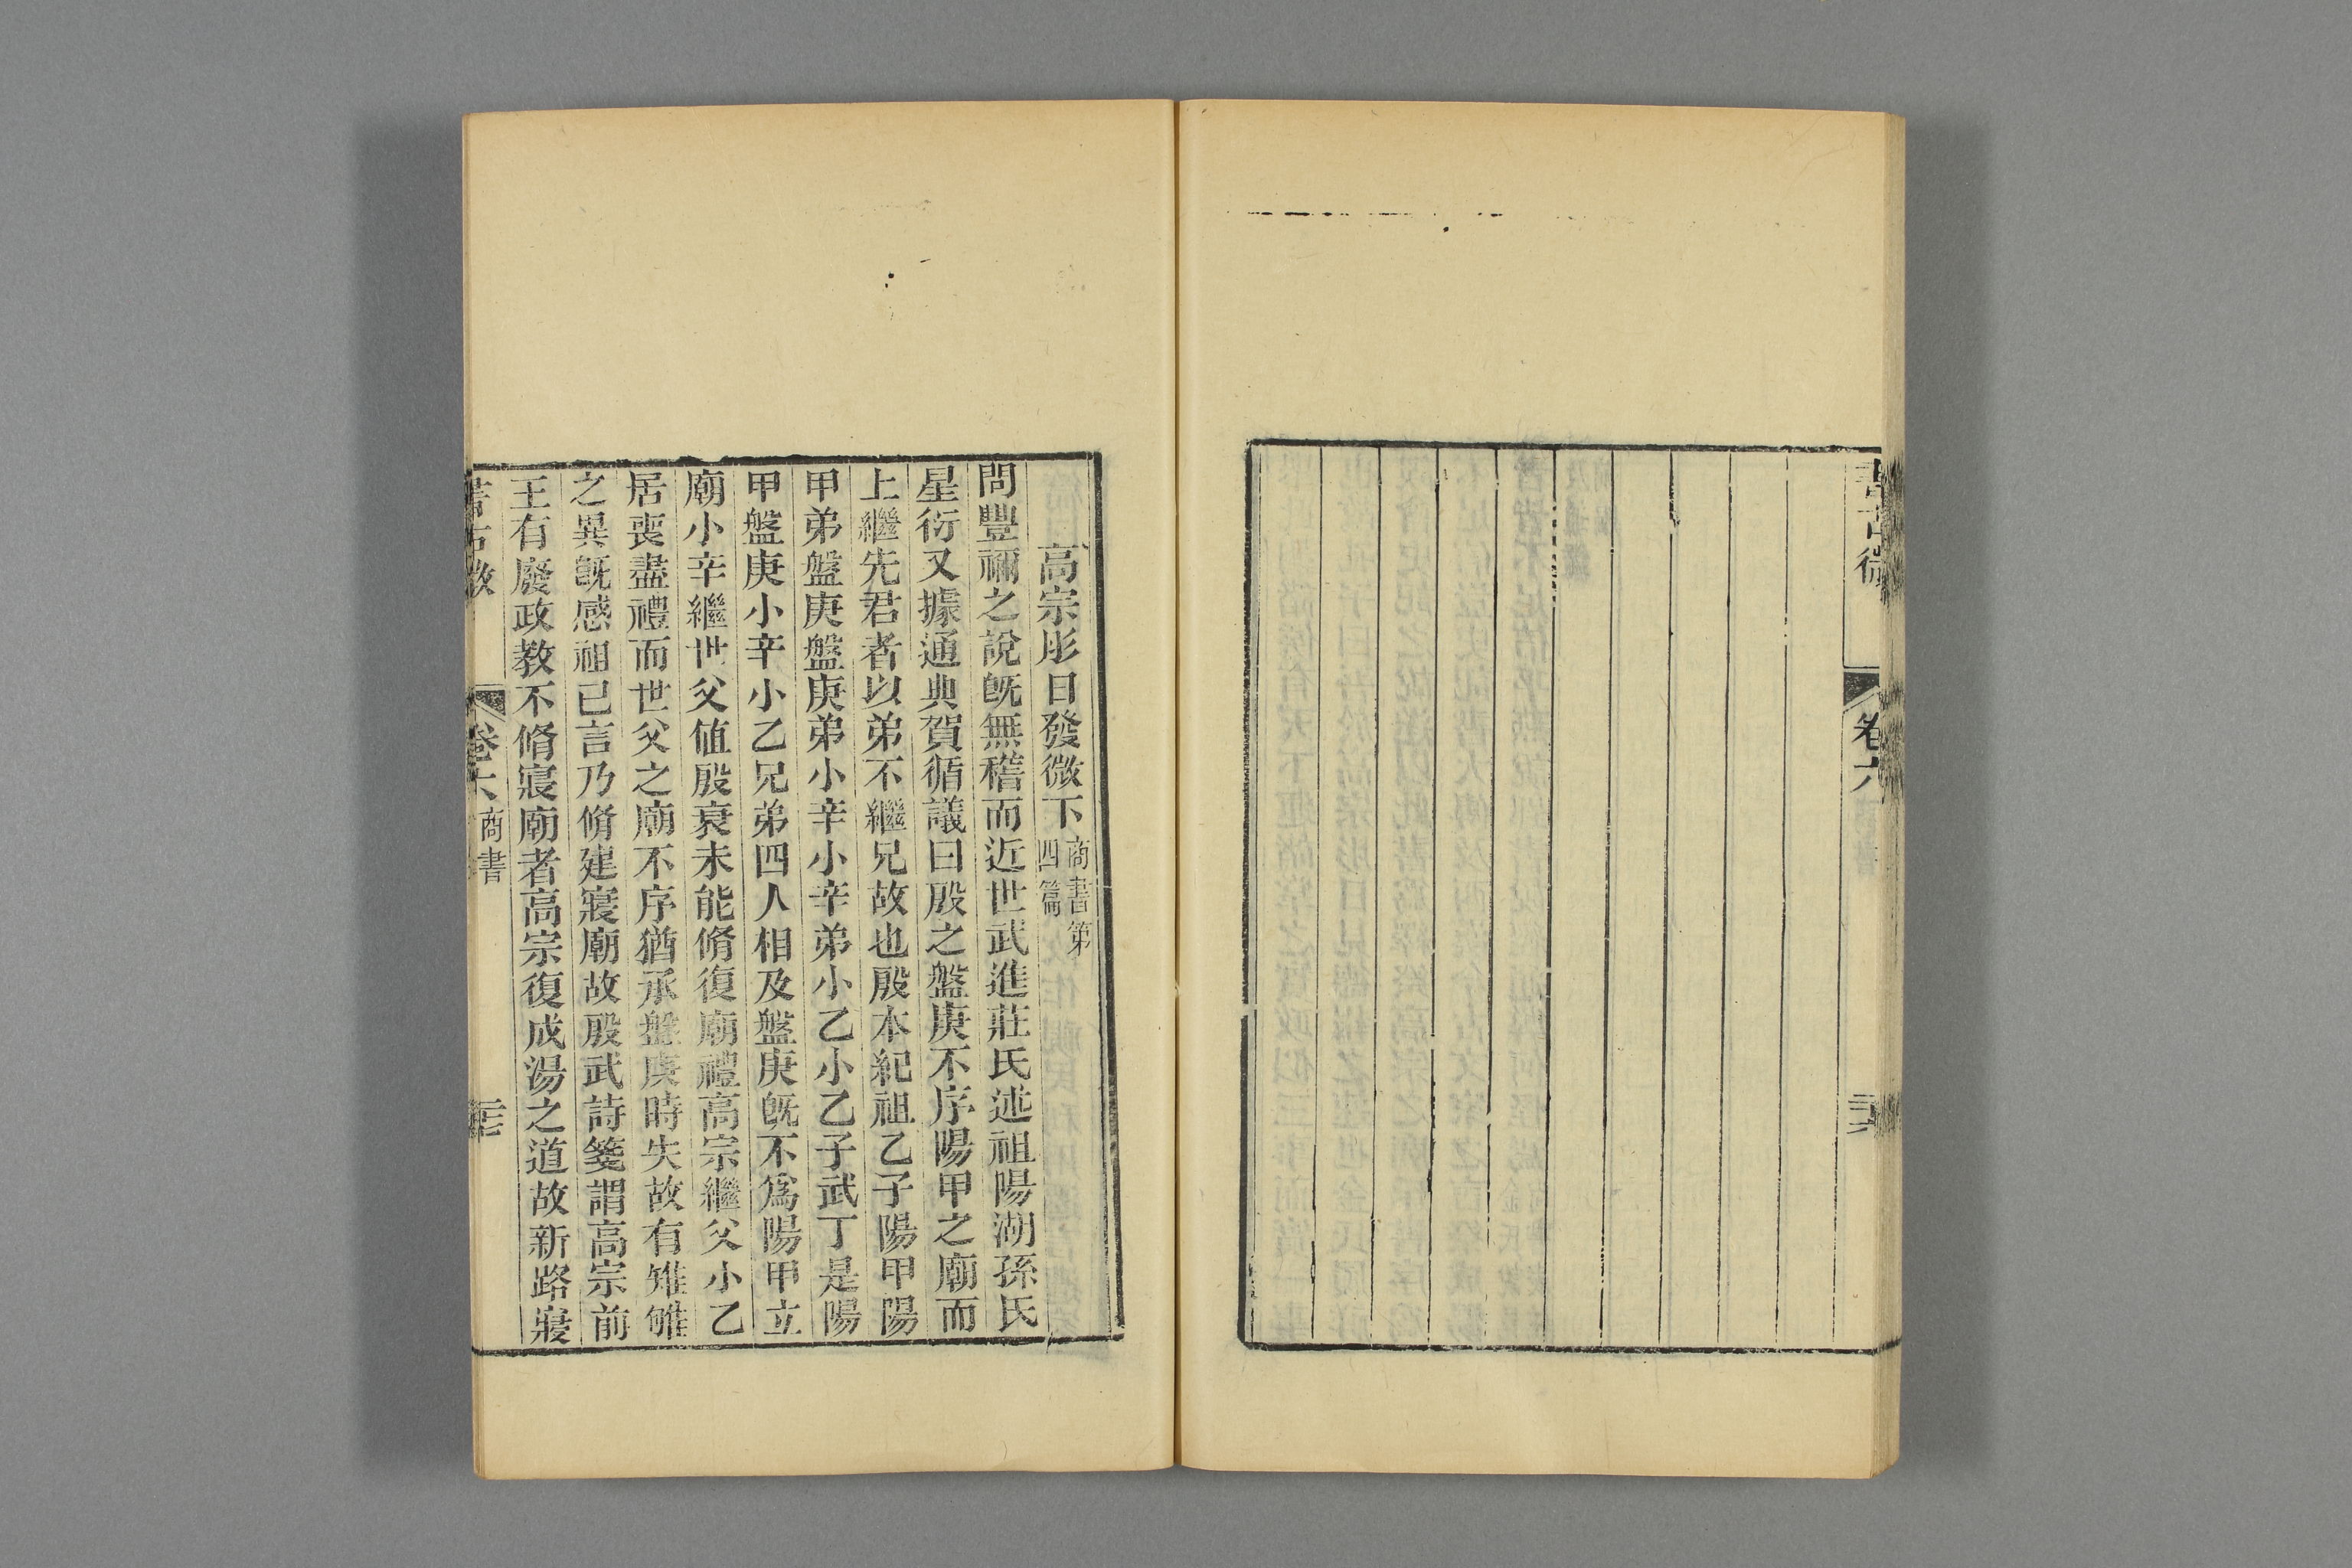 書古微
卷六
二十六
高宗肜日發微下商書第四篇
問豐禰之說旣無稽而近世武進莊氏述祖陽湖孫氏
星衍又據通典賀循議曰殷之盤庚不序陽甲之廟而
上繼先君者以弟不繼兄故也殷本紀祖乙子陽甲陽
甲弟盤庚盤庚弟小辛小辛弟小乙小乙子武丁是陽
甲盤庚小辛小乙兄弟四人相及盤庚旣不爲陽甲立
廟小辛繼世父値殷衰未能脩復廟禮高宗繼父小乙
居喪盡禮而世父之廟不序猶承盤庚時失故有雉雊
之異旣感祖已言乃脩建寢廟故殷武詩箋謂高宗前
王有廢政教不脩寢廟者高宗復成湯之道故新路寢
書古微
卷六
商書
二十七